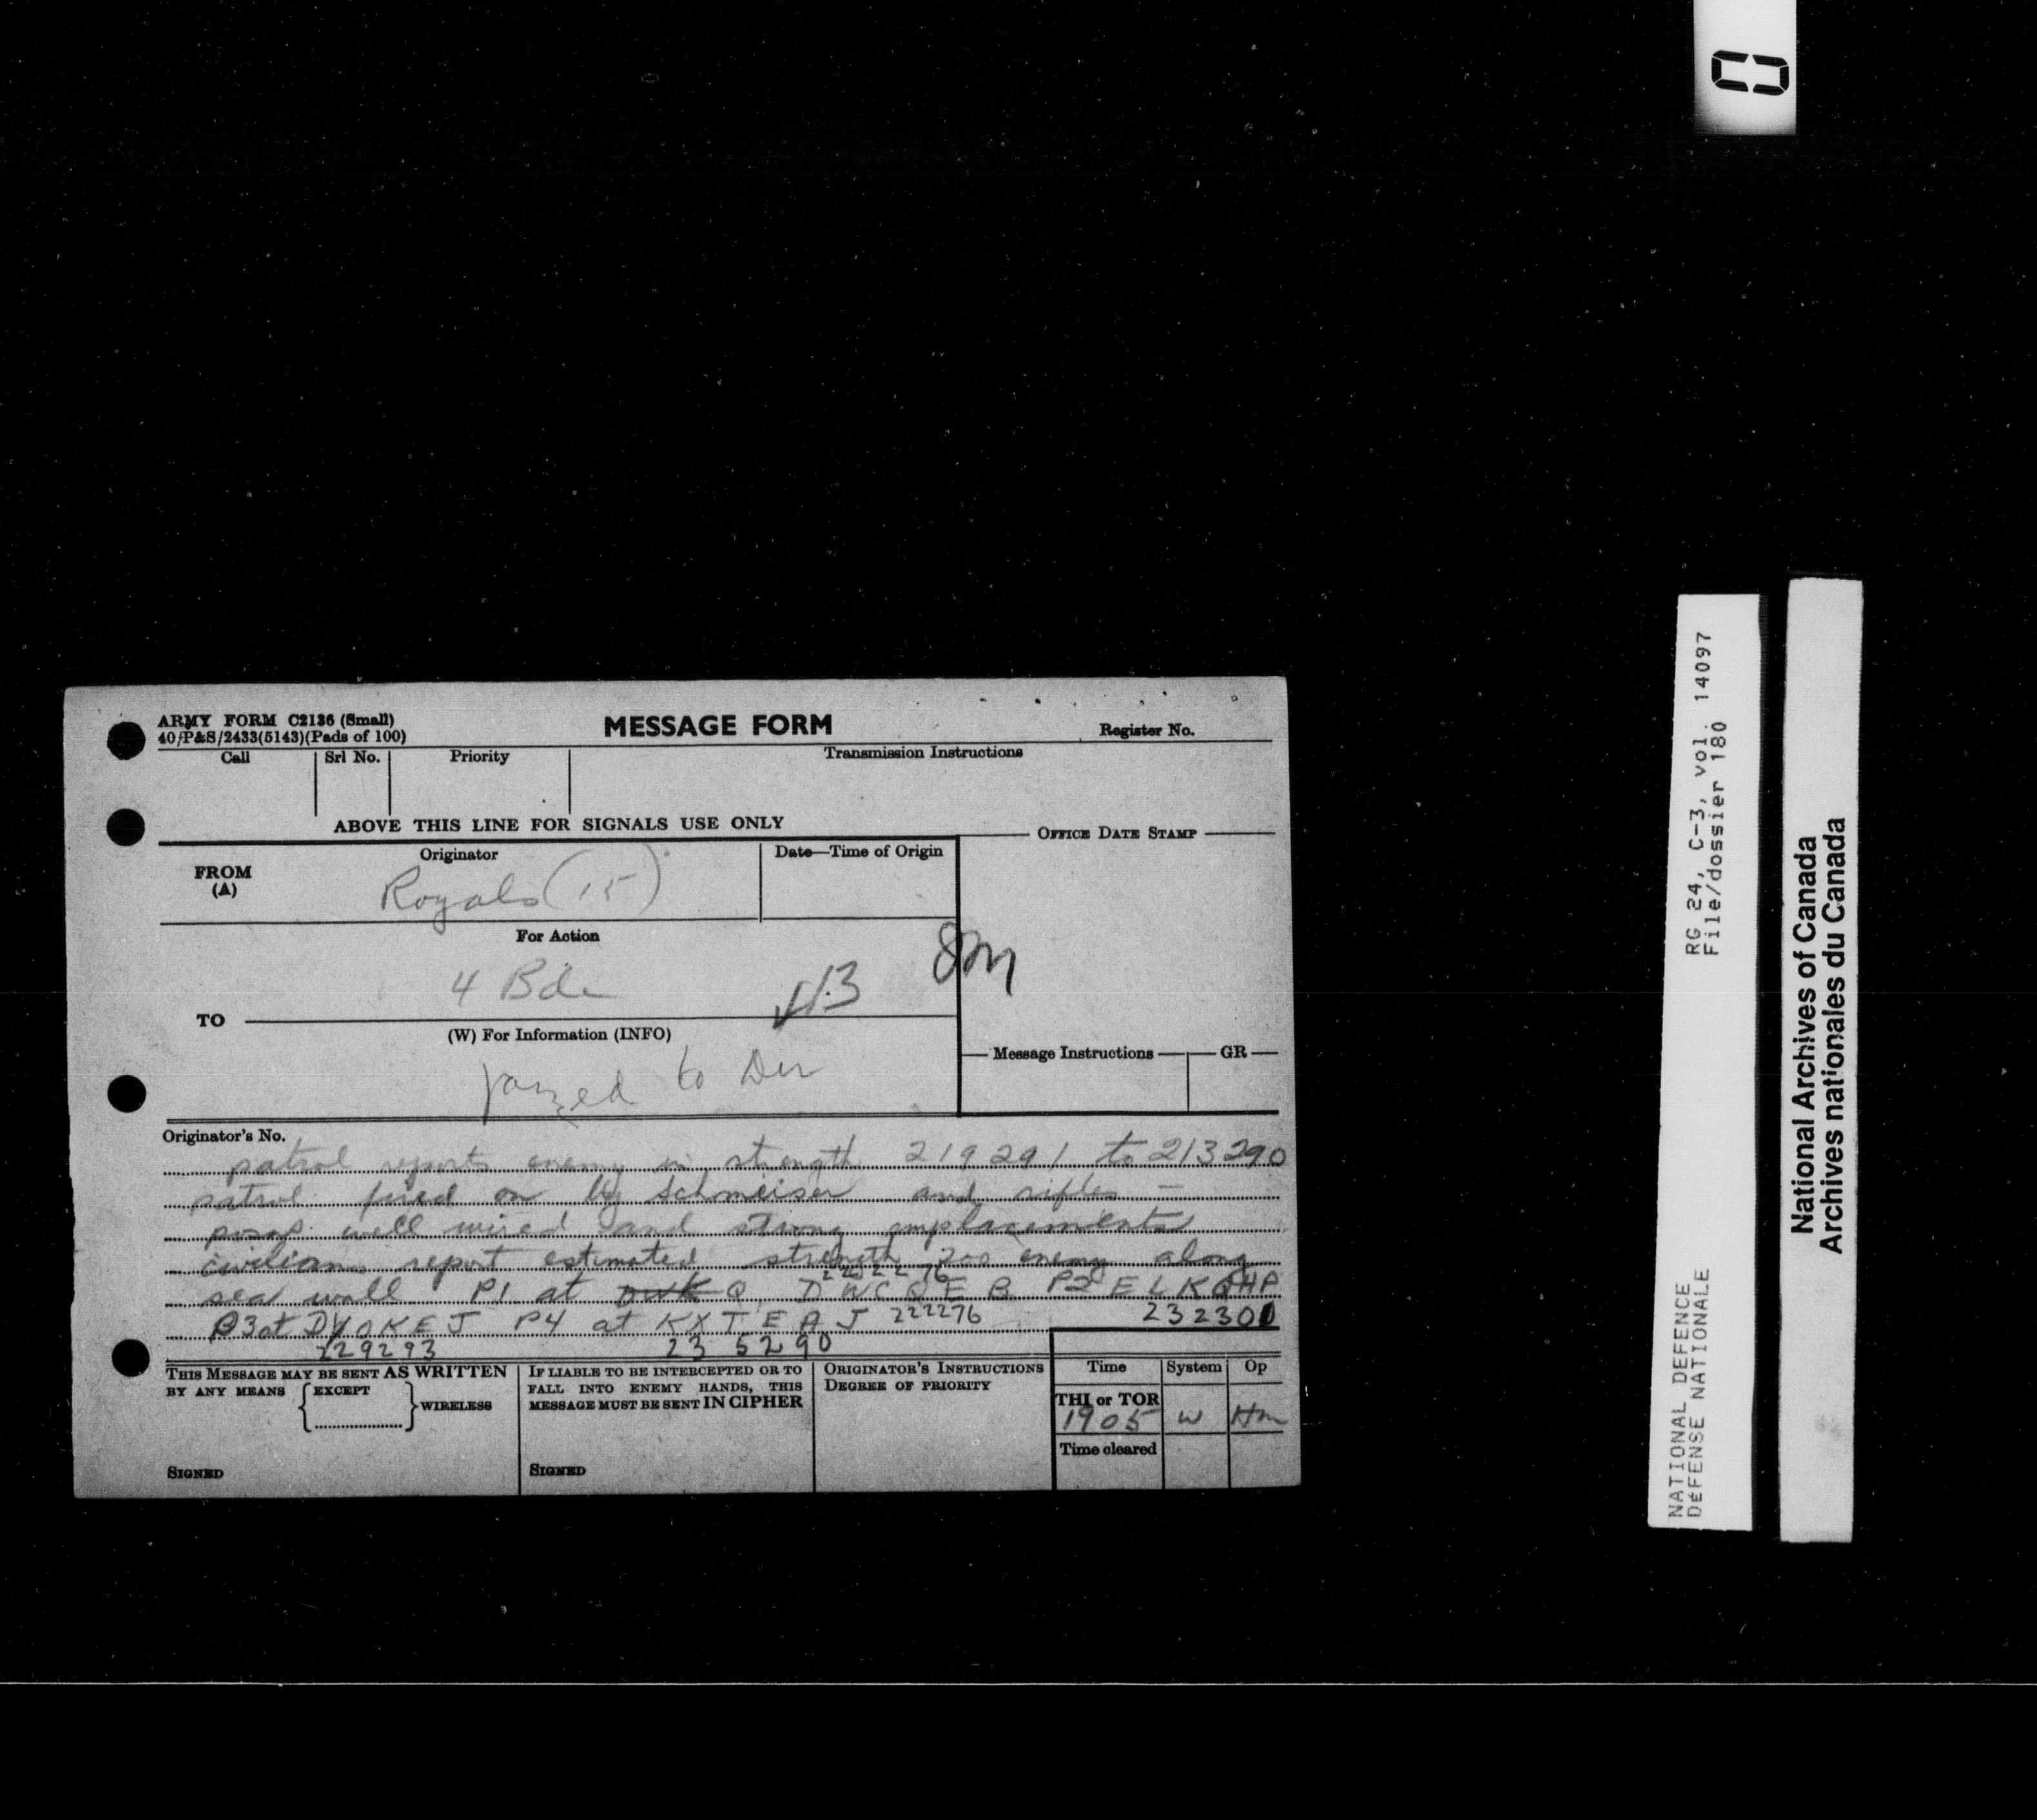 ARMY FORM C2136 (Small)
40/P&S/2433(5143)(Pads of 100)
MESSAGE FORM
Register No.
Call
Srl No.
Priority
Transmission Instructions
ABOVE THIS LINE FOR SIGNALS USE ONLY
OFFICE DATE STAMP
FROM
(A)
Originator
Date—Time of Origin
Royals (15)
For Action
4 Bde
13
TO
(W) For Information (INFO)
Message Instructions
GR
to
Originator's No.
patrol reports enemy in strength 219291 to 213290
patrol fired on by Schmeiser and rifles —
well wired and strong emplacements
civilians report estimated strength 200 enemy along
222276
sea wall P1 at Q DWCQEB P2 ELKQHP
P3 at DYOKEJ P4 at KXTEAJ 222276 232301
229293 235290
THIS MESSAGE MAY BE SENT AS WRITTEN
BY ANY MEANS { EXCEPT } WIRELESS
SIGNED
IF LIABLE TO BE INTERCEPTED OR TO
FALL INTO ENEMY HANDS, THIS
MESSAGE MUST BE SENT IN CIPHER
SIGNED
ORIGINATOR'S INSTRUCTIONS
DEGREE OF PRIORITY
Time
System
Op
THI or TOR
1905 W Hm
Time cleared
RG 24, C-3, vol. 14097
File/dossier 180
NATIONAL DEFENCE
DÉFENSE NATIONALE
National Archives of Canada
Archives nationales du Canada